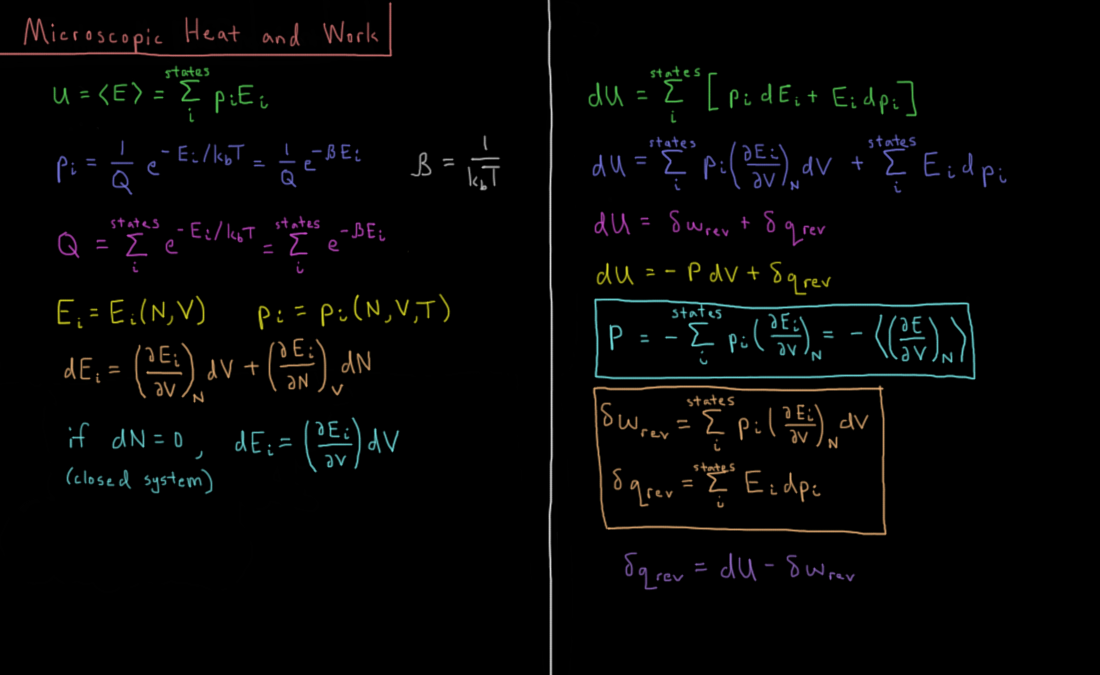 Microscopic Heat and Work
U = ⟨E⟩ = states ∑ i pᵢEᵢ
pᵢ = 1/Q e^(-Eᵢ/k_bT) = 1/Q e^(-βEᵢ) β = 1/k_bT
Q = states ∑ i e^(-Eᵢ/k_bT) = states ∑ i e^(-βEᵢ)
Eᵢ = Eᵢ(N,V) pᵢ = pᵢ(N,V,T)
dEᵢ = (∂Eᵢ/∂V)_N dV + (∂Eᵢ/∂N)_V dN
if dN = 0, dEᵢ = (∂Eᵢ/∂V) dV
(closed system)
dU = states ∑ i [pᵢ dEᵢ + Eᵢ dpᵢ]
dU = states ∑ i pᵢ(∂Eᵢ/∂V)_N dV + states ∑ i Eᵢ dpᵢ
dU = δw_rev + δq_rev
dU = - P dV + δq_rev
P = - states ∑ i pᵢ(∂Eᵢ/∂V)_N = - ⟨(∂E/∂V)_N⟩
δw_rev = states ∑ i pᵢ(∂Eᵢ/∂V)_N dV
δq_rev = states ∑ i Eᵢ dpᵢ
δq_rev = dU - δw_rev